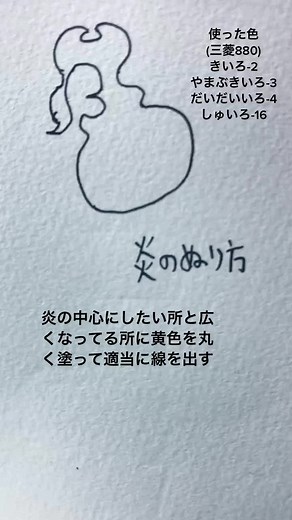 使った色
(三菱880)
きいろ-2
やまぶきいろ-3
だいだいいろ-4
しゅいろ-16
炎のぬり方
炎の中心にしたい所と広
くなってる所に黄色を丸
く塗って適当に線を出す